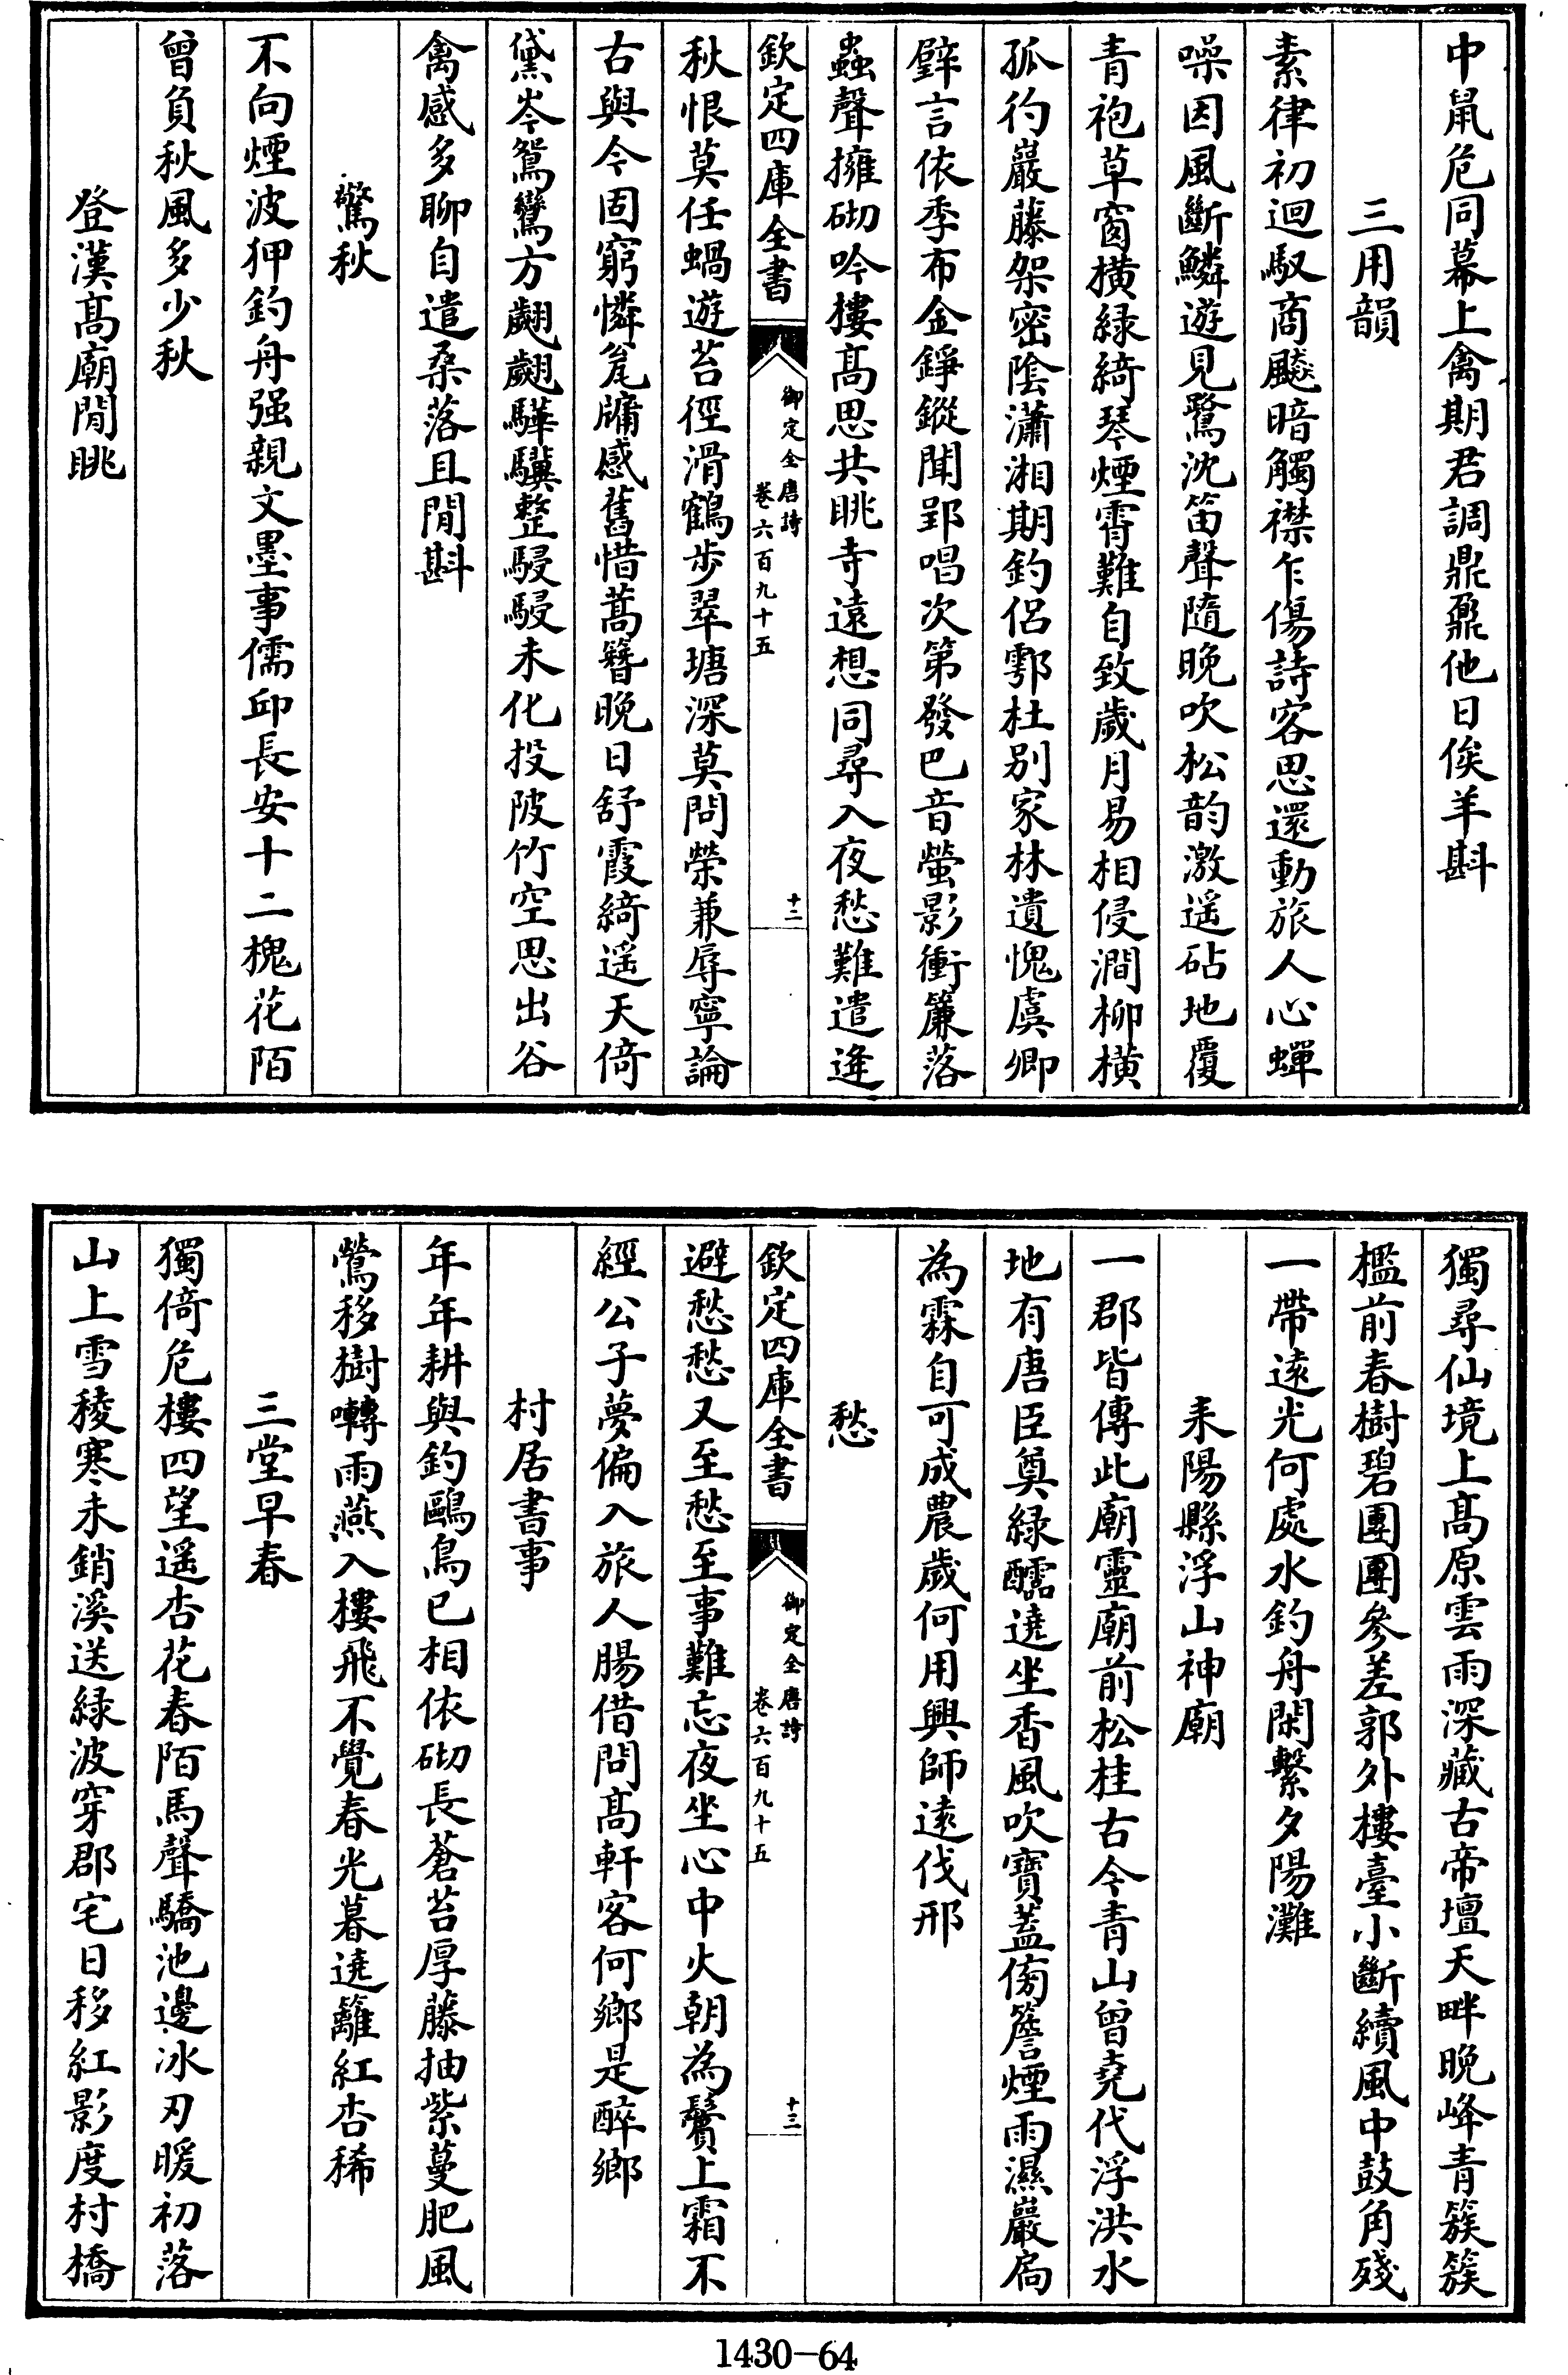 中鼠危同幕上禽期君調鼎鼐他日俟羊斟
三用韻
素律初迴馭商飇暗觸襟乍傷詩客思還動旅人心蟬
噪因風斷鱗遊見鷺沈笛聲隨晚吹松韵激遥砧地覆
青袍草窗横緑綺琴煙霄難自致歲月易相侵澗柳横
孤彴巖藤架密陰瀟湘期釣侣鄠杜别家林遺愧虞卿
璧言依季布金錚鏦聞郢唱次第發巴音螢影衝簾落
蟲聲擁砌吟樓髙思共眺寺遠想同尋入夜愁難遣逢
欽定四庫全書
御定全唐詩
卷六百九十五
十二
秋恨莫任蝸遊苔徑滑鶴步翠塘深莫問榮兼辱寧論
古與今固窮憐瓮牖感舊惜蒿簪晚日舒霞綺遥天倚
黛岑鴛鸞方翽翽驊驥整駸駸未化投陂竹空思出谷
禽感多聊自遣桑落且閒斟
驚秋
不向煙波狎釣舟强親文墨事儒邱長安十二槐花陌
曾負秋風多少秋
登漢髙廟閒眺
獨尋仙境上髙原雲雨深藏古帝壇天畔晚峰青簇簇
檻前春樹碧團團參差郭外樓臺小斷續風中鼓角殘
一帶逺光何處水釣舟閑繫夕陽灘
耒陽縣浮山神廟
一郡皆傳此廟靈廟前松桂古今青山曾堯代浮洪水
地有唐臣奠緑醽遶坐香風吹寶蓋傍簷煙雨濕巖扃
為霖自可成農歲何用興師逺伐邢
愁
欽定四庫全書
御定全唐詩
卷六百九十五
十三
避愁愁又至愁至事難忘夜坐心中火朝為鬢上霜不
經公子夢偏入旅人腸借問髙軒客何鄉是醉鄉
村居書事
年年耕與釣鷗鳥已相依砌長蒼苔厚藤抽紫蔓肥風
鶯移樹囀雨燕入樓飛不覺春光暮遶籬紅杏稀
三堂早春
獨倚危樓四望遥杏花春陌馬聲驕池邊冰刃暖初落
山上雪稜寒未銷溪送緑波穿郡宅日移紅影度村橋
1430-64